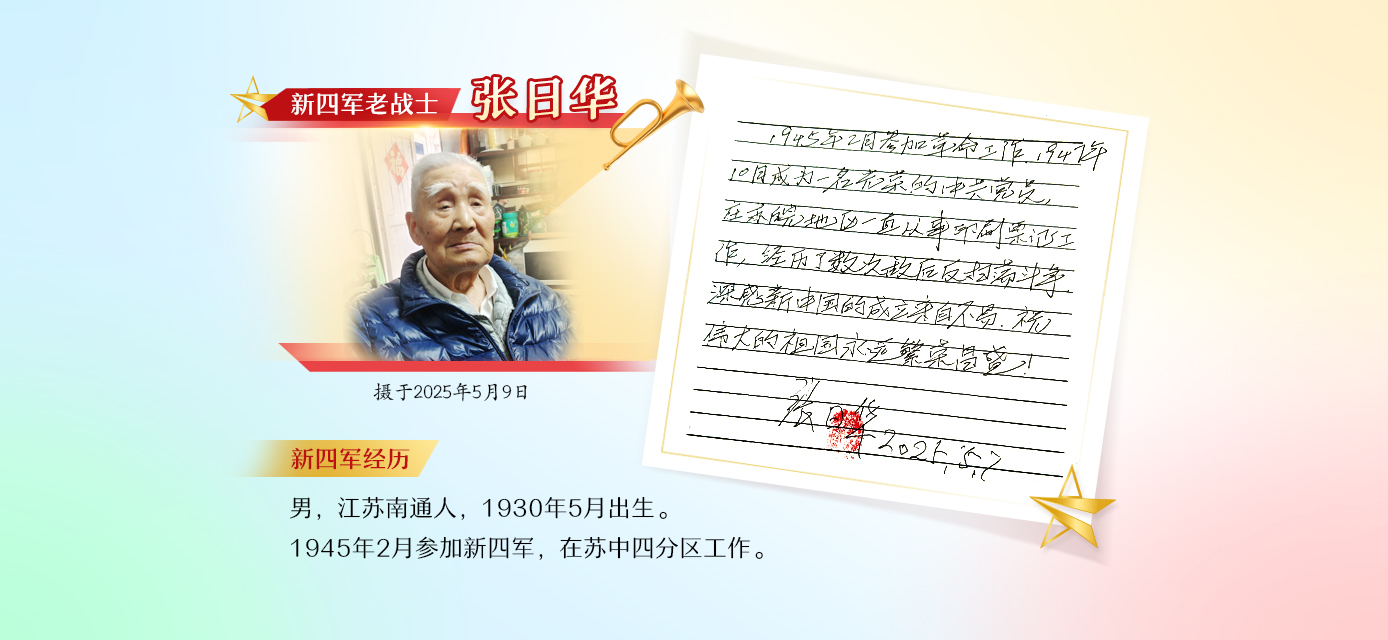 新四军老战士 张日华
摄于2025年5月9日
新四军经历
男，江苏南通人，1930年5月出生。
1945年2月参加新四军，在苏中四分区工作。
1945年2月参加革命工作，1947年
10月成为一名光荣的中共党员，
在苏皖地区一直从事印刷票证工
作，经历了数次敌后反扫荡斗争，
深感新中国的成立来自不易，祝
伟大的祖国永远繁荣昌盛！
张日华
2025.5.7